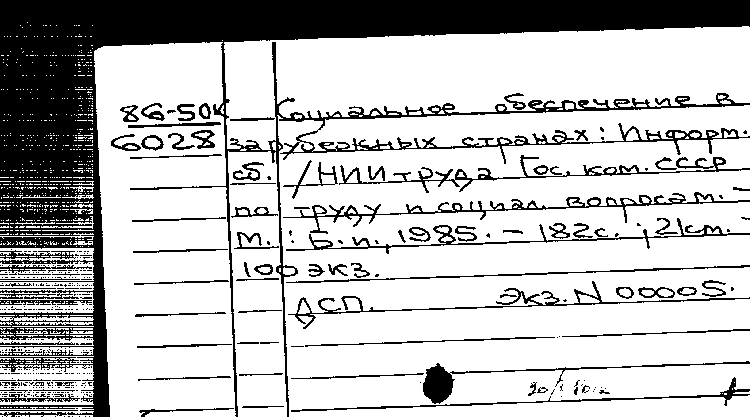 86-50К Социальное обеспечение в
6028 зарубежных странах: Информ.
сб. /НИИ труда Гос. ком. СССР
по труду и социал. вопросам. –
М. : Б.и., 1985. – 182с. ; 21см. –
100 экз.
ДСП. Экз. N 00005.